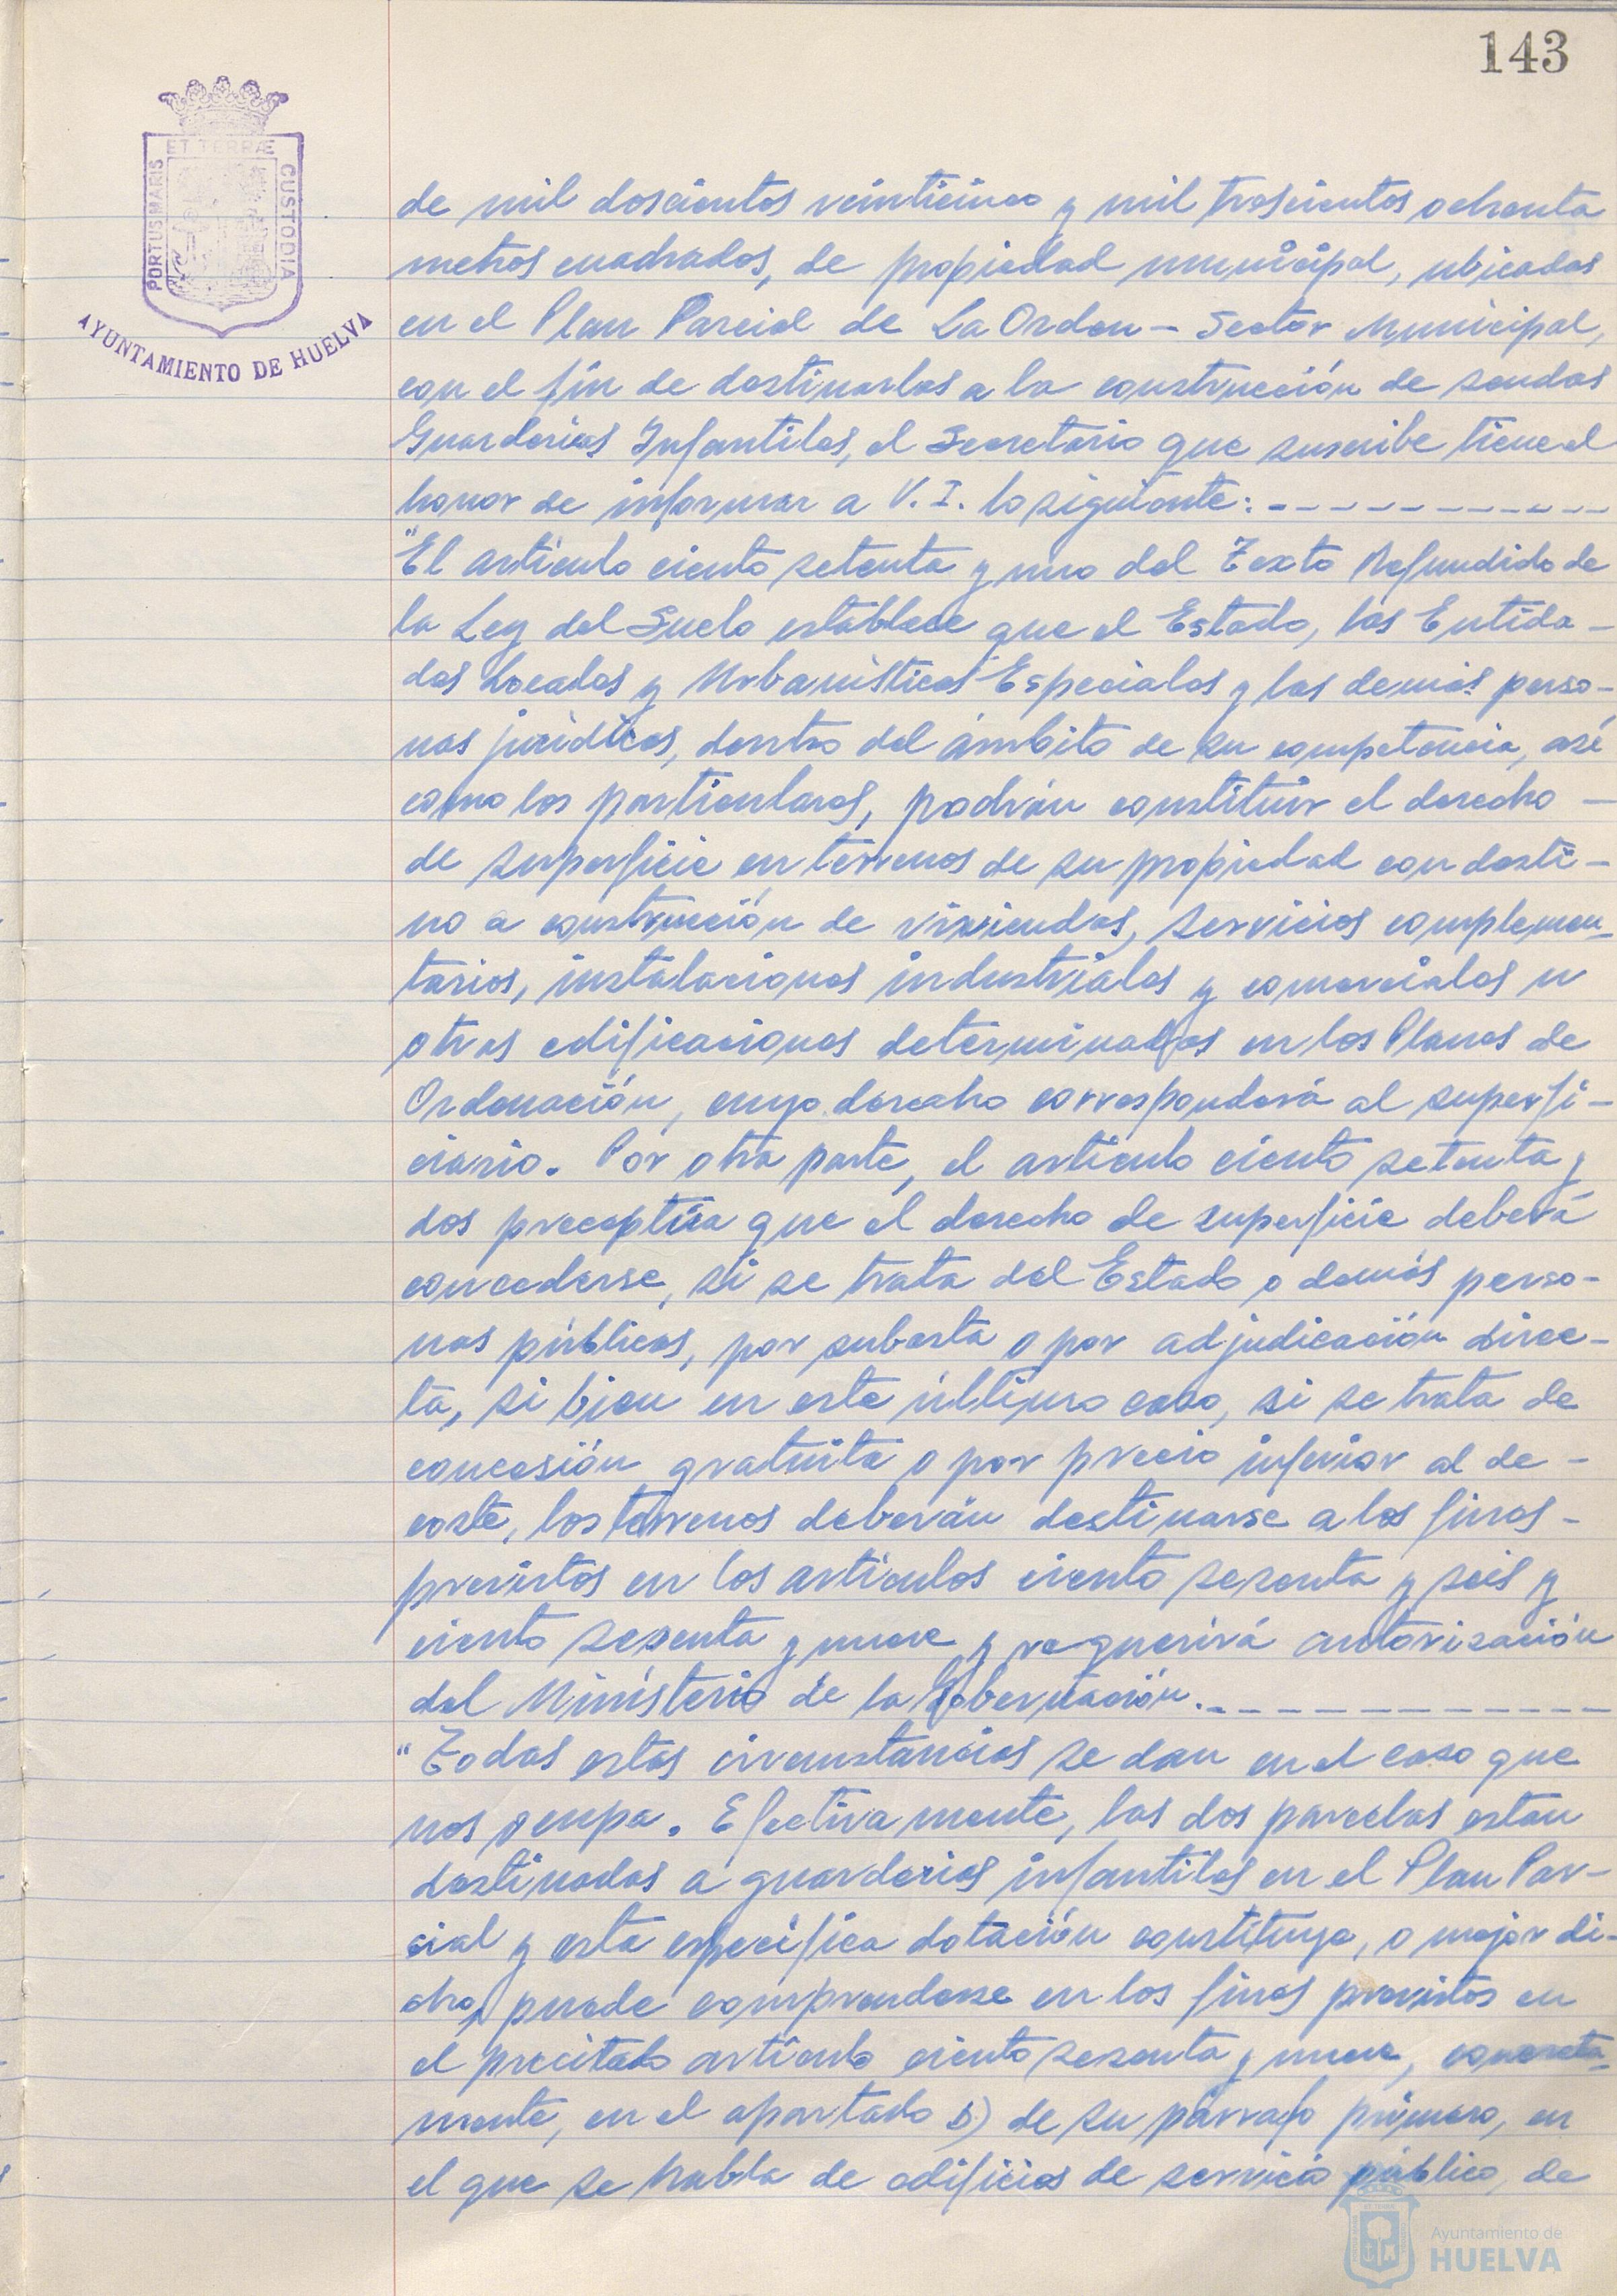 143
ET TERRÆ
PORTUS MARIS
CUSTODIA
AYUNTAMIENTO DE HUELVA
de mil doscientos veinticinco y mil trescientos ochenta
metros cuadrados, de propiedad municipal, ubicadas
en el Plan Parcial de La Orden - Sector Municipal,
con el fin de destinarlas a la construcción de sendas
Guarderias Infantiles, el Secretario que suscribe tiene el
honor de informar a V. I. lo siguiente: - - - - - - - - - -
"El articulo ciento setenta y uno del Texto Refundido de
la Ley del Suelo establece que el Estado, las Entida -
des Locales y Urbanisticas Especiales y las demás perso-
nas juridicas, dentro del ámbito de su competencia, asi
como los particulares, podrán constituir el derecho -
de superficie en terrenos de su propiedad con desti-
no a construcción de viviendas, servicios complemen-
tarios, instalaciones industriales y comerciales u
otras edificaciones determinadas en los Planes de
Ordenación, cuyo derecho corresponderá al superfi-
ciario. Por otra parte, el articulo ciento setenta y
dos preceptúa que el derecho de superficie deberá
concederse, si se trata del Estado o demás perso-
nas públicas, por subasta o por adjudicación direc-
ta, si bien en este último caso, si se trata de
concesión gratuita o por precio inferior al de -
coste, los terrenos deberán destinarse a los fines -
previstos en los articulos ciento sesenta y seis y
ciento sesenta y nueve y requerirá autorización
del Ministerio de la Gobernación. - - - - - - - - - - - -
"Todas estas circunstancias se dan en el caso que
nos ocupa. Efectivamente, las dos parcelas estan
destinadas a guarderias infantiles en el Plan Par-
cial y esta especifica dotación constituye, o mejor di-
cho, puede comprenderse en los fines previstos en
el precitado articulo ciento sesenta y nueve, concreta-
mente, en el apartado b) de su párrafo primero, en
el que se habla de edificios de servicio público, de
Ayuntamiento de
HUELVA